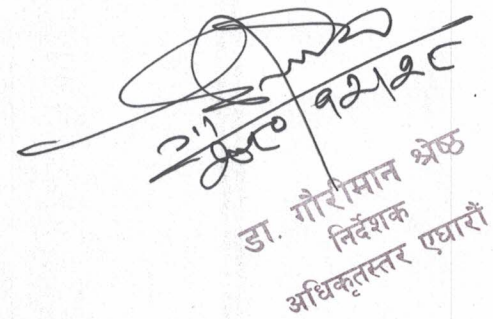 २०८०।१२।२८
डा. गौरीमान श्रेष्ठ
निर्देशक
अधिकृतस्तर एघारौं